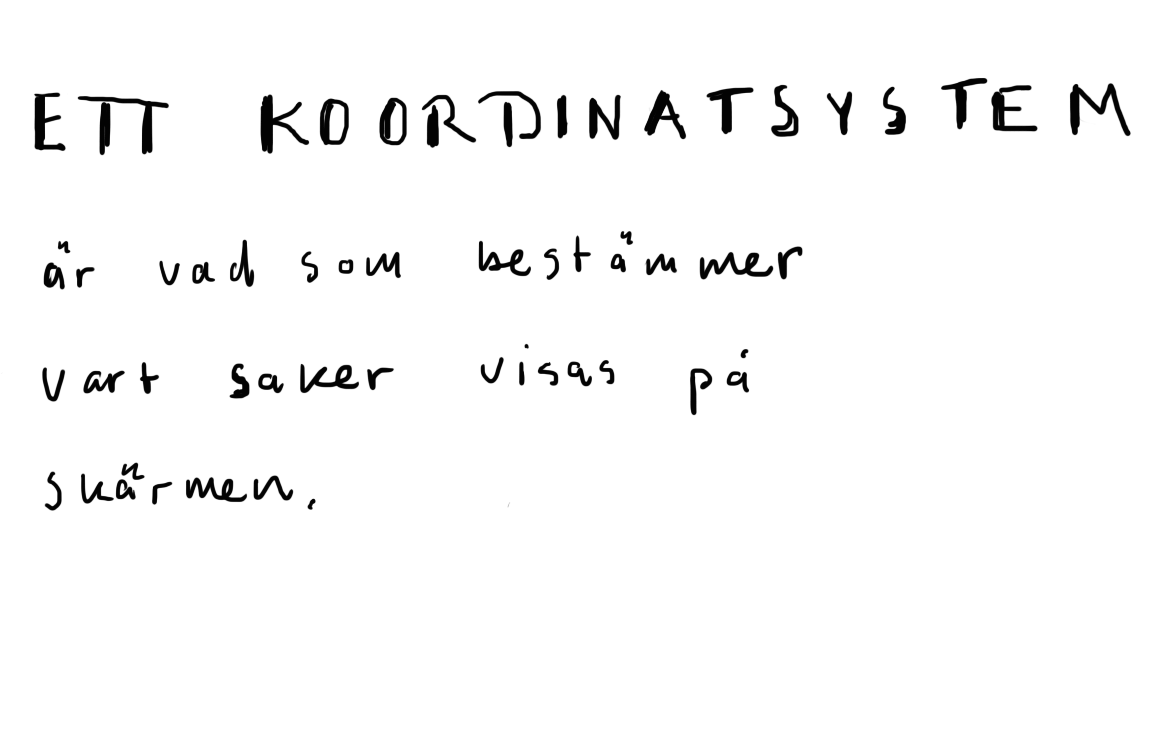 ETT KOORDINATSYSTEM
är vad som bestämmer
vart saker visas på
skärmen.